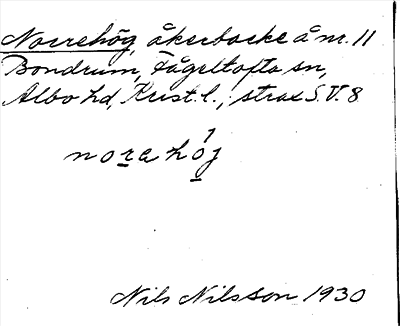 Norrehög, åkerbacke å nr. 11
Bondrum, Fågeltofta sn,
Albo hd, Krist. l., strax S.V. 8
norahój
Nils Nilsson 1930